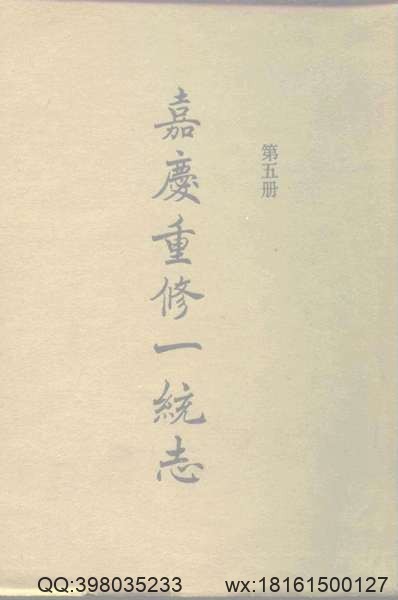 第五册
嘉慶重修一統志
QQ:398035233 wx:18161500127